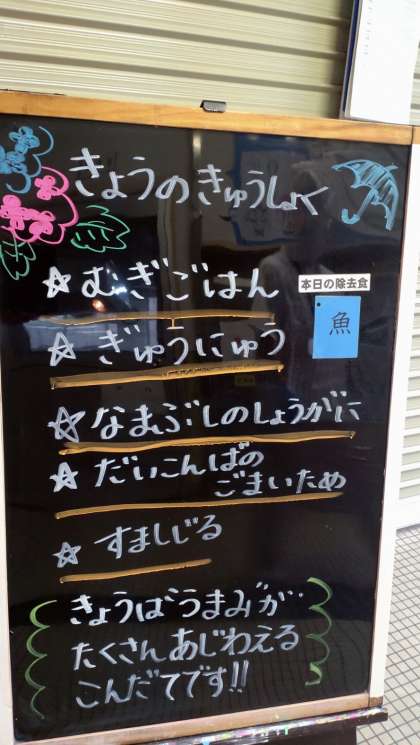 きょうのきゅうしょく
☆むぎごはん
本日の除去食
魚
☆ぎゅうにゅう
☆なまぶしのしょうがに
☆だいこんばの
ごまいため
☆すましじる
きょうはうまみが‥
たくさんあじわえる
こんだてです!!